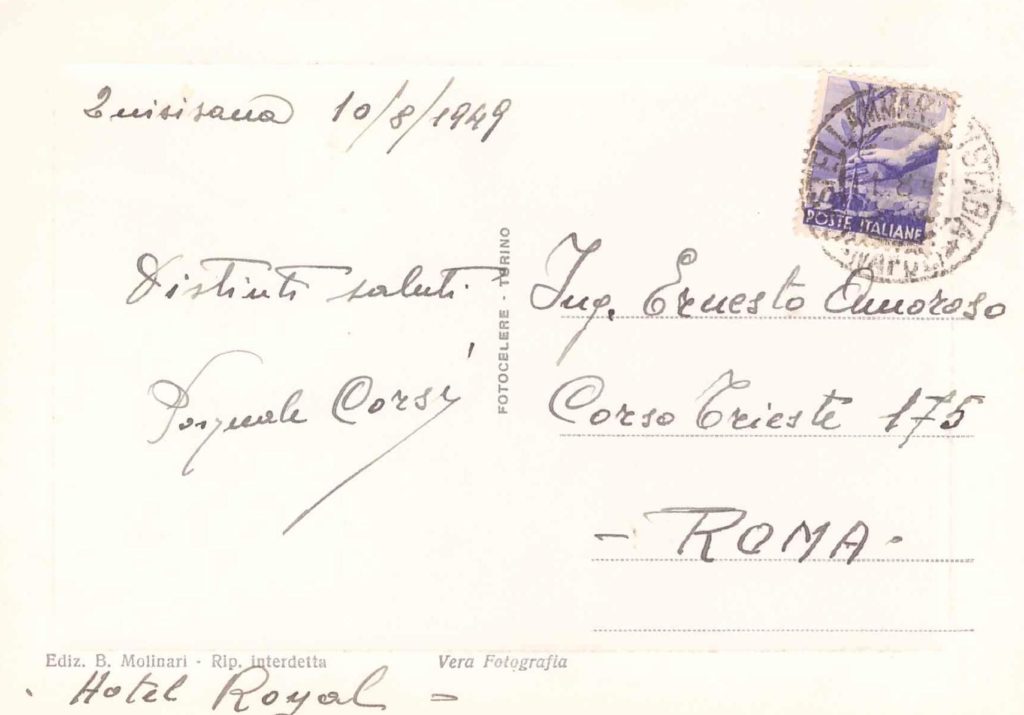 Quisisana 10/8/1949
Distinti saluti.
Pasquale Corsi
FOTOCELERE - TORINO
POSTE ITALIANE
Ing. Ernesto Amoroso
Corso Trieste 175
- ROMA -
Ediz. B. Molinari - Rip. interdetta
Vera Fotografia
Hotel Royal =